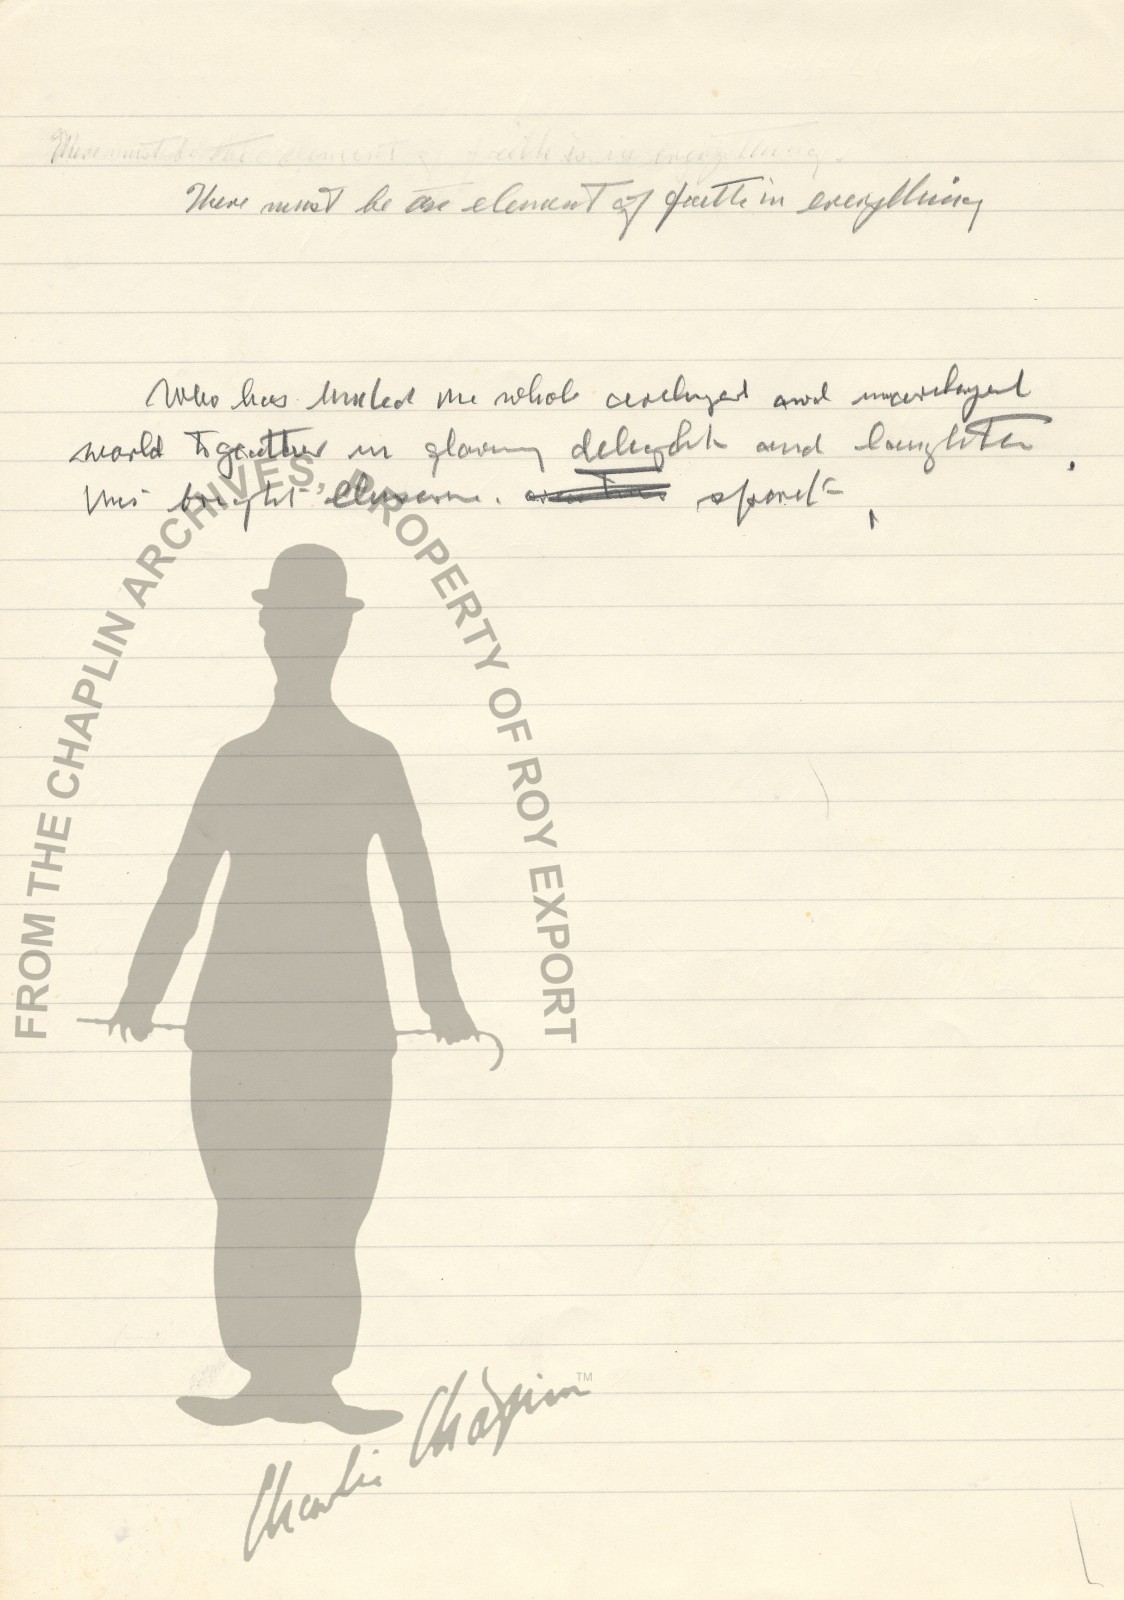 There must be the element of faith is in everything.
There must be an element of faith in everything
Who has linked the whole civilized and uncivilized
world together in glowing delight and laughter,
this bright elusive. spark,
FROM THE CHAPLIN ARCHIVES, PROPERTY OF ROY EXPORT
Charlie Chaplin™